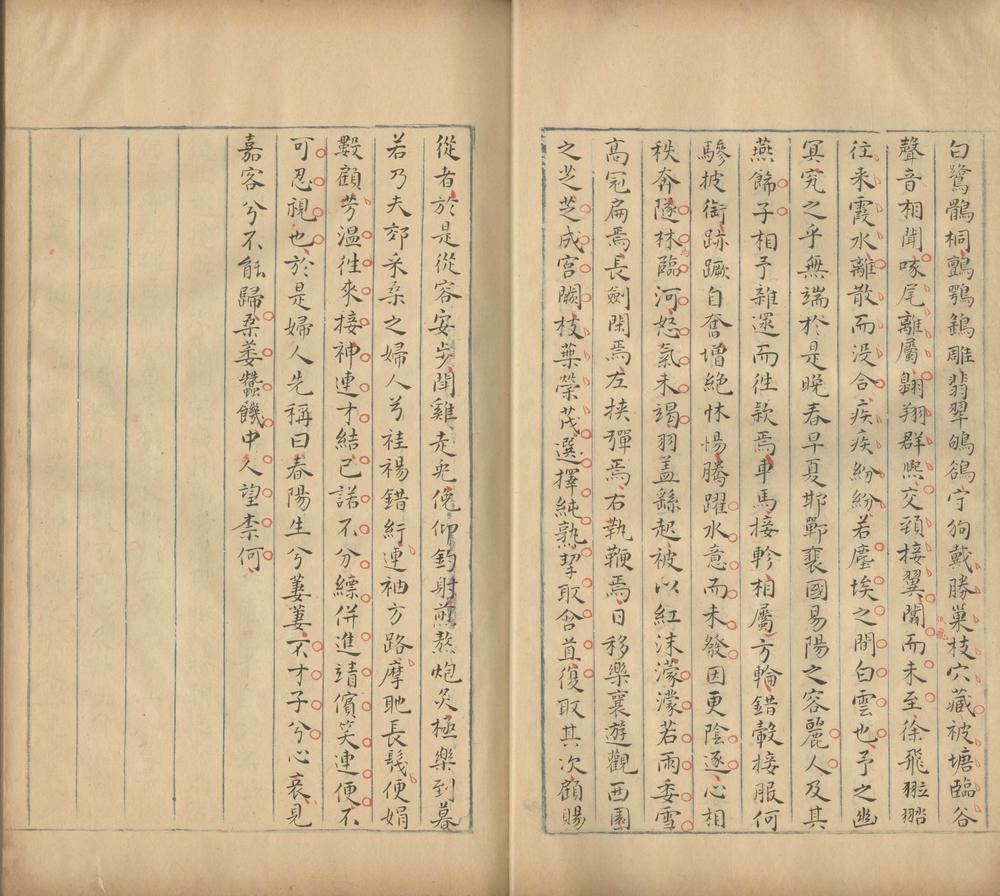 白鷺鶻桐鸇鶚鷂雕翡翠鴝鵒守狗戴勝巢枝穴藏被塘臨谷
聲音相聞啄尾離屬翾翔群嬉交頸接翼闟而未至徐飛翋㗳
往来霞水離散而没合疾疾紛紛若塵埃之間白雲也予之幽
冥究之乎無端於是晚春早夏邯鄲裹國易陽之容麗人及其
燕餙子相予雜遝而徃款焉車馬接軫相屬方輪錯轂接服何
驂披銜跡蹶自奮增絶怵惕騰躍水意而未發因更陰逐心相
秩奔隧林臨河怒氣未竭羽盖繇起被以紅沫濛濛若雨委雪
高冠扁焉長劍閑焉左挾彈焉右執鞭焉日移樂襄遊觀西園
之芝芝成宫闕枝葉榮茂選擇純熟挈取含苴復取其次顧賜
從者於是從容安步鬥雞走兎俛仰釣射煎熬炮炙極樂到暮
若乃夫郊采桑之婦人兮袿裼錯紆連袖方路摩眦長髮便娟
數顧芳温徃來接神連才結已諾不分縹併進靖儐笑連便不
可忍視也於是婦人先稱曰春陽生兮萋萋不才子兮心哀見
嘉客兮不能歸桑萎蠶饑中人望柰何